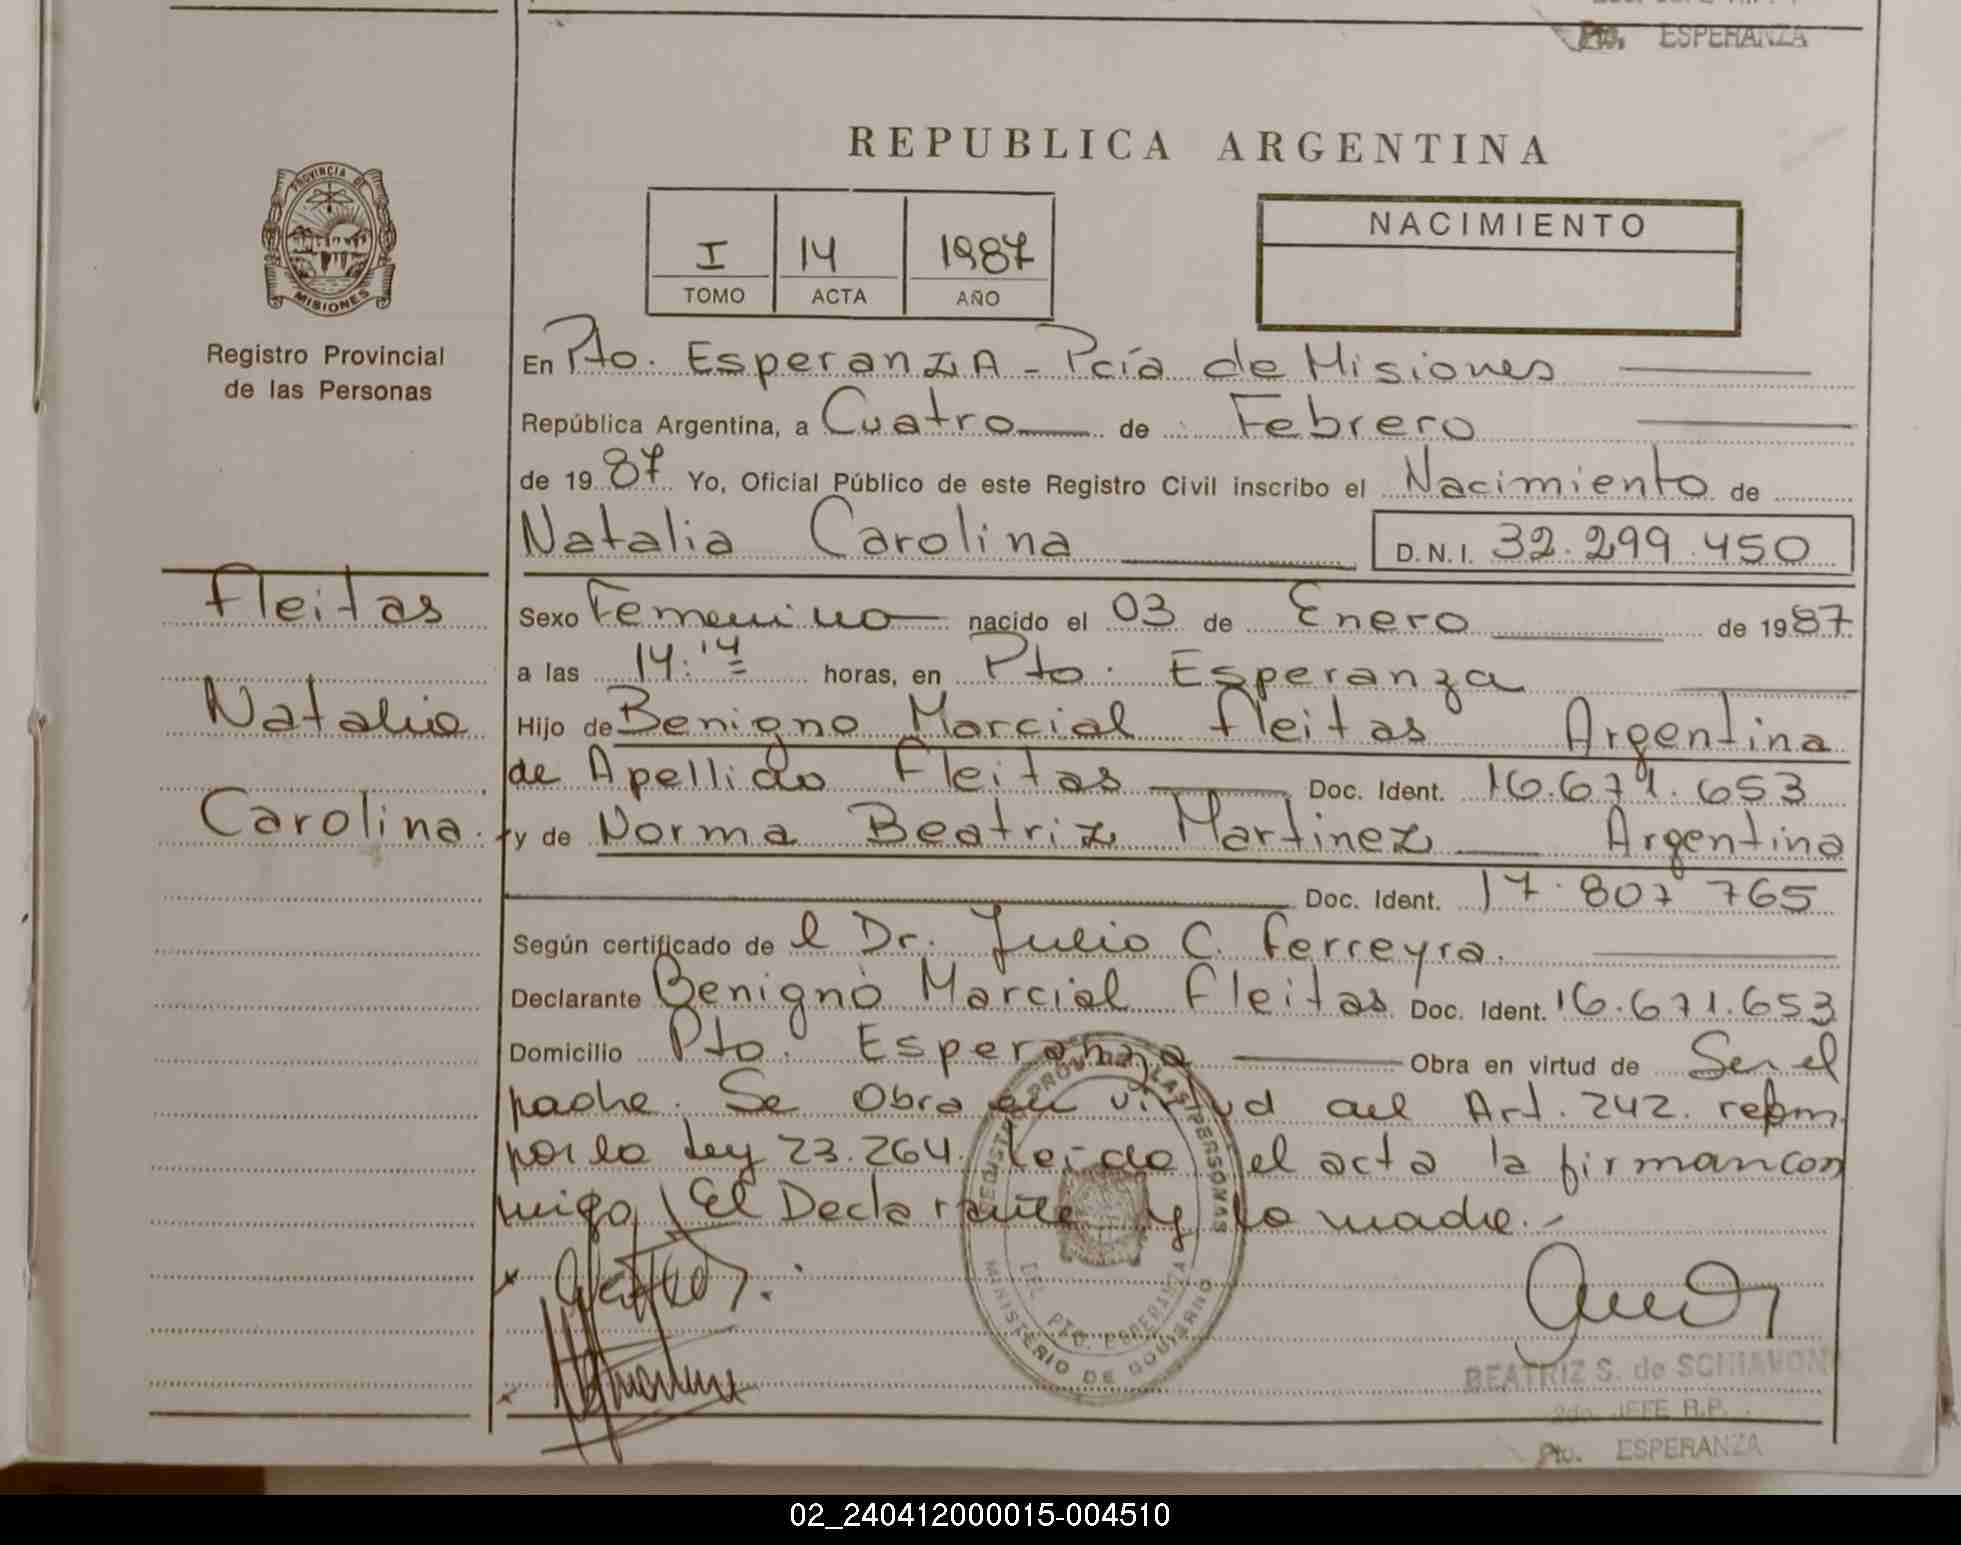 Pto. ESPERANZA
REPUBLICA ARGENTINA
PROVINCIA DE
MISIONES
Registro Provincial
de las Personas
I 14 1987
TOMO ACTA AÑO
NACIMIENTO
En Pto. Esperanza - Pcía de Misiones
República Argentina, a Cuatro de Febrero
de 1987 Yo, Oficial Público de este Registro Civil inscribo el Nacimiento de
Natalia Carolina D.N.I. 32.299.450
Fleitas
Natalia
Carolina.
Sexo Femenino nacido el 03 de Enero de 1987
a las 14:14 horas, en Pto. Esperanza
Hijo de Benigno Marcial Fleitas Argentina
de Apellido Fleitas Doc. Ident. 16.671.653
y de Norma Beatriz Martinez Argentina
Doc. Ident. 17.807 765
Según certificado de el Dr. Julio C. Ferreyra.
Declarante Benigno Marcial Fleitas Doc. Ident. 16.671.653
Domicilio Pto. Esperanza Obra en virtud de Ser el
padre. Se Obra en virtud del Art. 242. reform.
por la Ley 23.264. Leída el acta la firman con
migo, El Declarante y la madre.-
REGISTRO PROV. DE LAS PERSONAS
DEL PTO. ESPERANZA
MINISTERIO DE GOBIERNO
BEATRIZ S. de SCHIAVONI
2do. JEFE R.P.
Pto. ESPERANZA
02_240412000015-004510